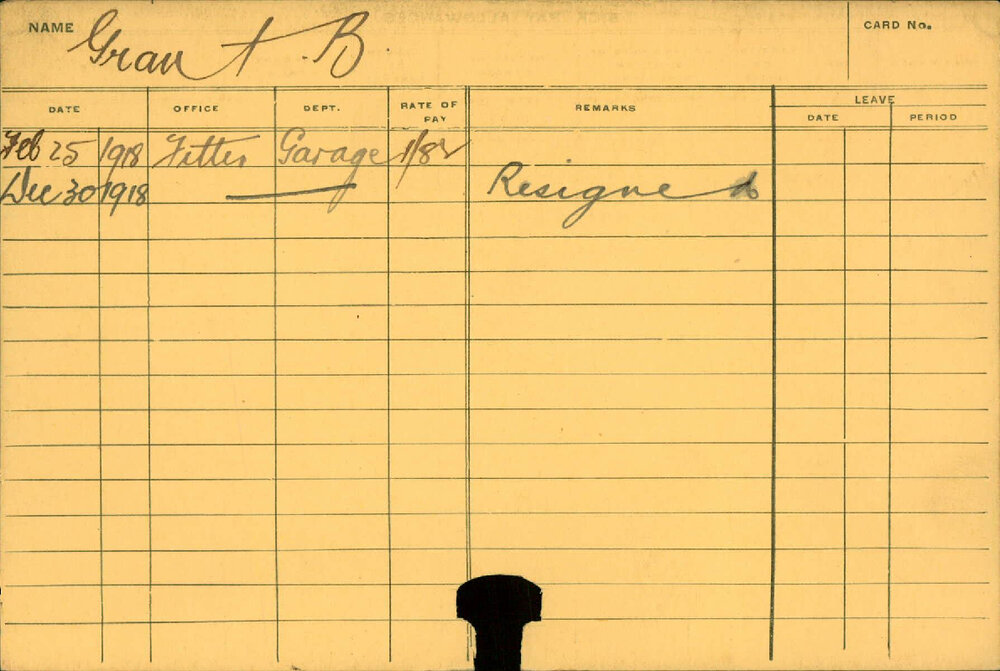 NAME Grant . B. CARD No.
DATE OFFICE DEPT. RATE OF PAY REMARKS LEAVE
DATE PERIOD
Feb 25 1918 Fitter Garage
Dec 30 1918 — Resigned